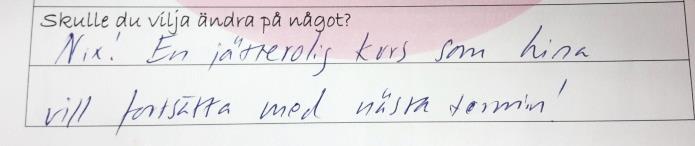 Skulle du vilja ändra på något?
Nix! En jätterolig kurs som
vill fortsätta med nästa termin!